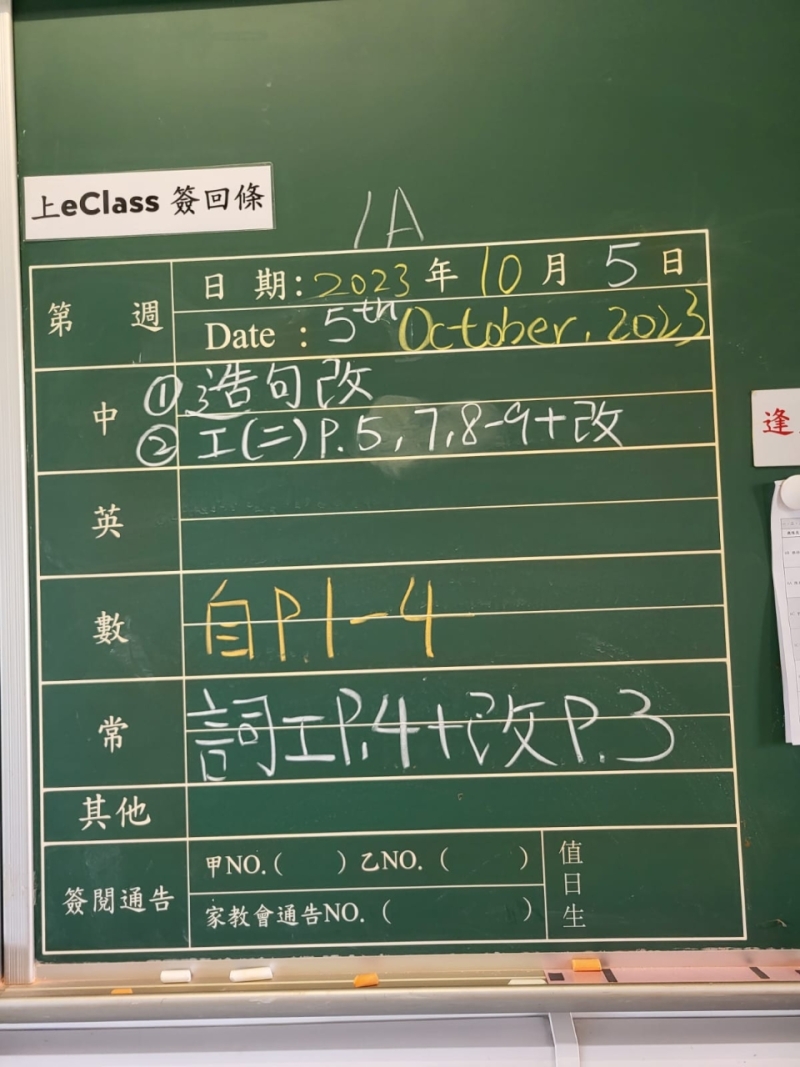 上eClass 簽回條
1A
第 週
日 期: 2023 年 10 月 5 日
Date : 5th October, 2023
中
① 造句改
② 工(二) P.5, 7, 8-9+改
逢
英
數
自P.1-4
常
詞工P.4+改P.3
其他
簽閱通告
甲NO.( ) 乙NO. ( )
家教會通告NO. ( )
值日生